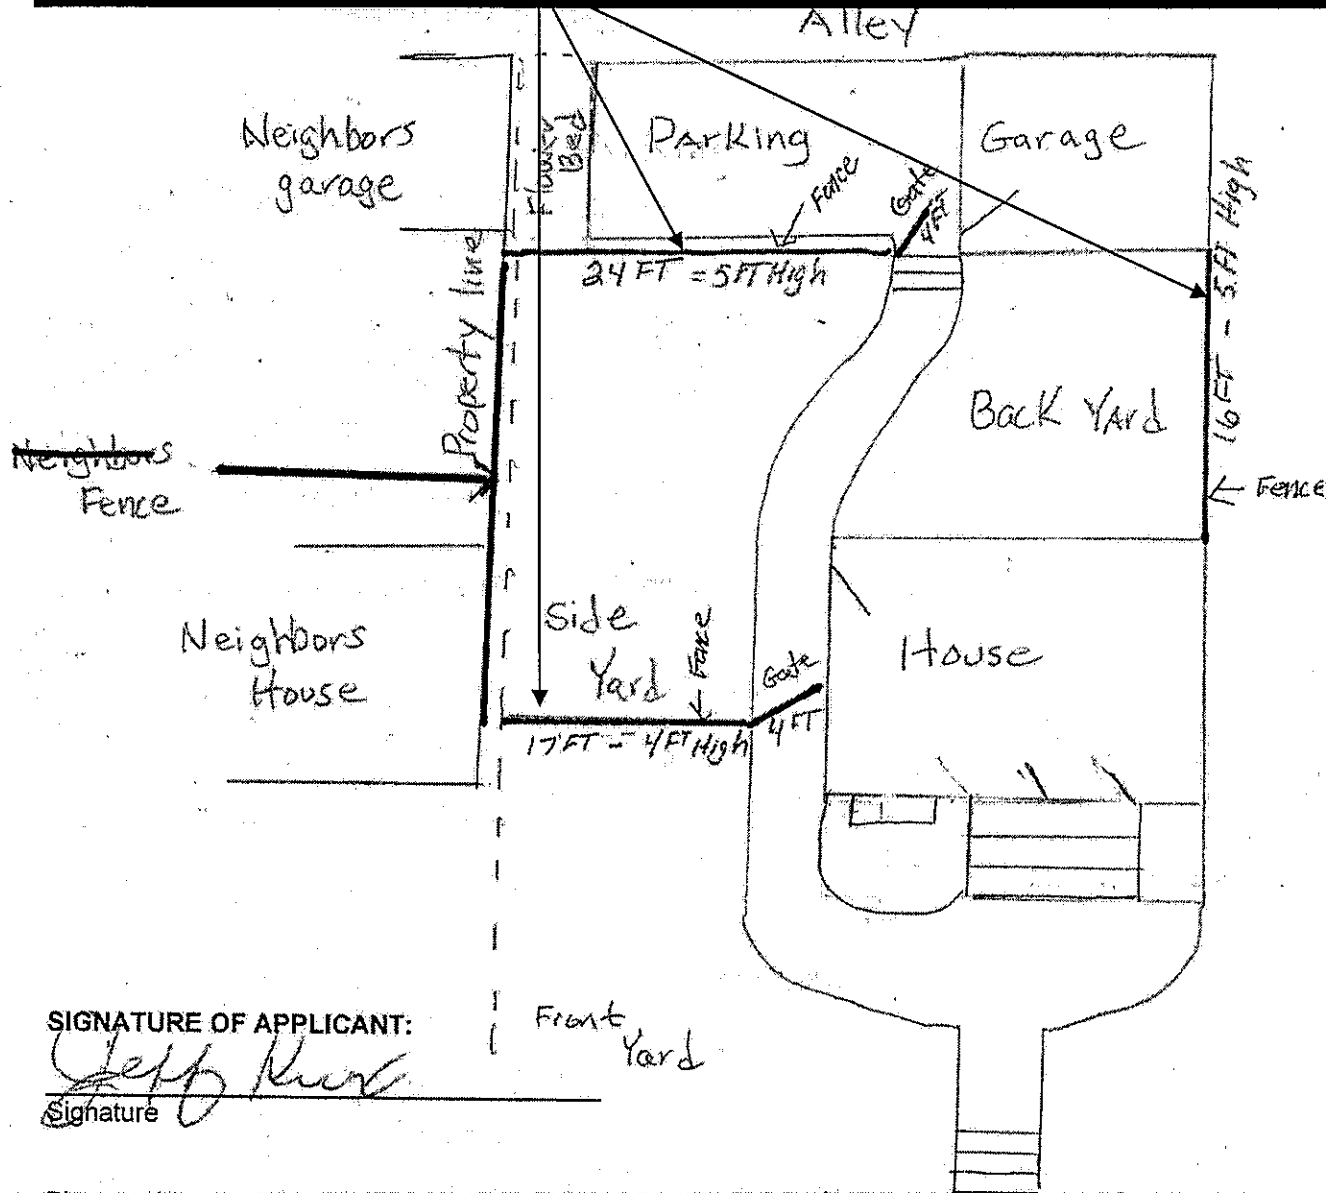 Alley
Neighbors
garage
Flower
Bed
Parking
Fence
Gate
4FT
Garage
24 FT = 5FT High
Property line
16 FT - 5 FT High
Back YArd
Neighbors
Fence
Fence
Neighbors
House
Side
Yard
Fence
Gate
4 FT
House
17 FT - 4 FT High
Front
Yard
SIGNATURE OF APPLICANT:
Signature